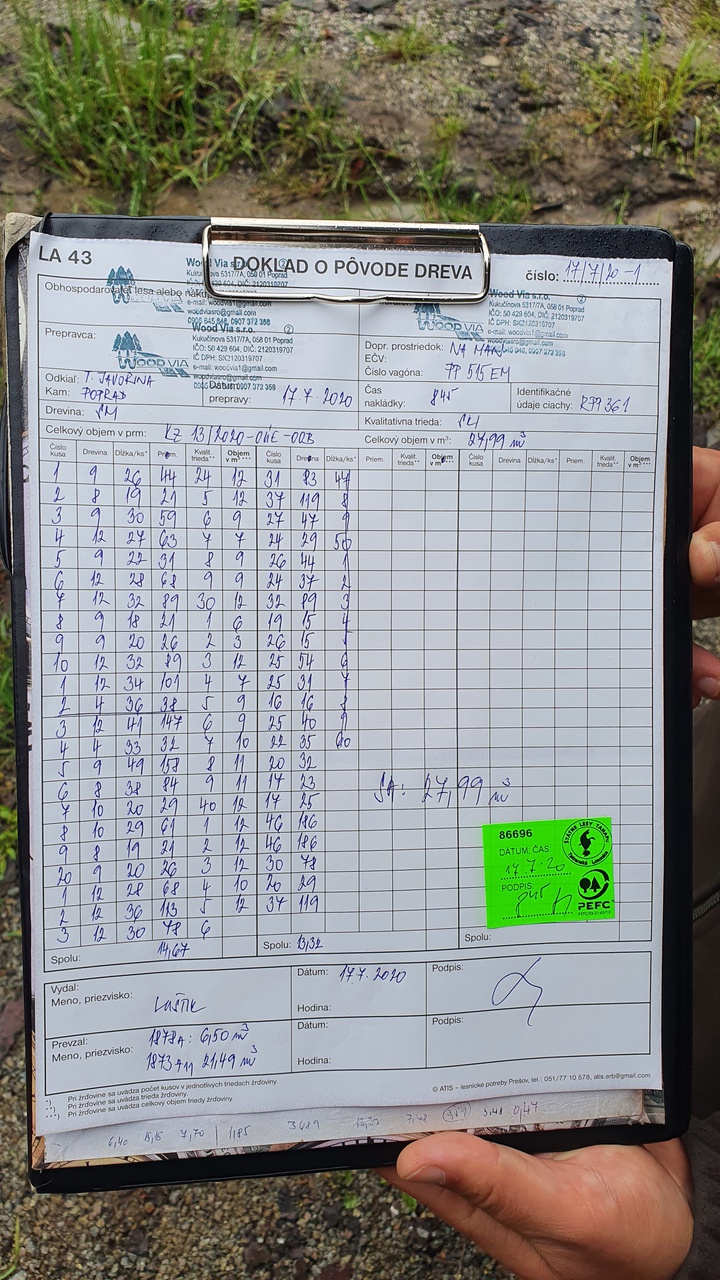 LA 43
DOKLAD O PÔVODE DREVA
číslo: 17/7/20 -1
Obhospodarovateľ lesa alebo
Wood Via s.r.o.
Kukučínova 5317/7A, 058 01 Poprad
IČO: 50 429 604, DIČ: 2120319707
IČ DPH: SK2120319707
e-mail: woodvia1@gmail.com
WOOD VIA
Prepravca:
Wood Via s.r.o.
Kukučínova 5317/7A, 058 01 Poprad
IČO: 50 429 604, DIČ: 2120319707
IČ DPH: SK2120319707
e-mail: woodvia1@gmail.com
WOOD VIA
Dopr. prostriedok:
EČV:
Číslo vagóna: PP 515 EM
Odkiaľ: T. JAVORINA
Kam: POPRAD
Dátum prepravy: 17.7.2020
Čas nakládky: 845
Identifikačné údaje ciachy:
Drevina: SM
Kvalitatívna trieda:
Celkový objem v prm:
Celkový objem v m³: 27,99 m³
Číslo kusa Drevina Dĺžka/ks* Priem. Kvalit. trieda** Objem v m³*** Číslo kusa Drevina Dĺžka/ks* Priem. Kvalit. trieda** Objem v m³*** Číslo kusa Drevina Dĺžka/ks* Priem. Kvalit. trieda** Objem v m³***
1 9 26 44 24 12 31 83 47
2 8 19 21 5 12 37 119 8
3 9 30 59 6 9 27 47 9
4 12 27 63 7 7 24 29 50
5 9 22 31 8 9 26 44 1
6 12 28 68 9 9 24 37 2
7 12 32 89 30 12 32 89 3
8 9 18 21 1 6 19 15 4
9 9 20 26 2 3 26 15 5
10 12 32 89 3 12 25 54 6
1 12 34 101 4 7 25 31 7
2 4 36 38 5 9 16 16 8
3 12 41 147 6 9 25 40 9
4 4 33 32 7 10 22 35 60
5 9 49 158 8 11 20 32
6 8 38 84 9 11 17 23
7 10 20 29 40 12 17 25
8 10 29 61 1 12 46 186
9 8 19 21 2 12 46 186
20 9 20 26 3 12 30 78
1 12 28 68 4 10 20 29
2 12 36 113 5 12 37 119
3 12 30 78 6
27,99 m³
86696
DÁTUM: ČAS
17.7.20
PODPIS:
ŠTÁTNE LESY TANAPu
Tatranská Lomnica
PEFC
Spolu: 14,67 Spolu: 13,32 Spolu:
Vydal:
Meno, priezvisko:
Dátum: 17.7.2020
Hodina:
Podpis:
Prevzal: 1878A: 6,50 m³
Meno, priezvisko: 21,49 m³
Dátum:
Hodina:
Podpis:
*) Pri žrďovine sa uvádza počet kusov v jednotlivých triedach žrďoviny.
**) Pri žrďovine sa uvádza trieda žrďoviny.
***) Pri žrďovine sa uvádza celkový objem triedy žrďoviny.
© ATIS – lesnícke potreby Prešov, tel.: 051/77 10 578, atis.erb@gmail.com
6,40 7,70 1,85 0,47